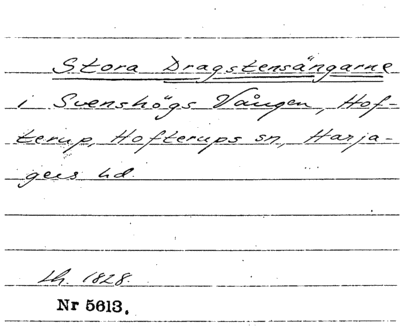 Stora Dragstensängarne
i Svenshögs Vången, Hof-
terup, Hofterups sn, Harja-
gers hd.
Lh. 1828.
Nr 5613.